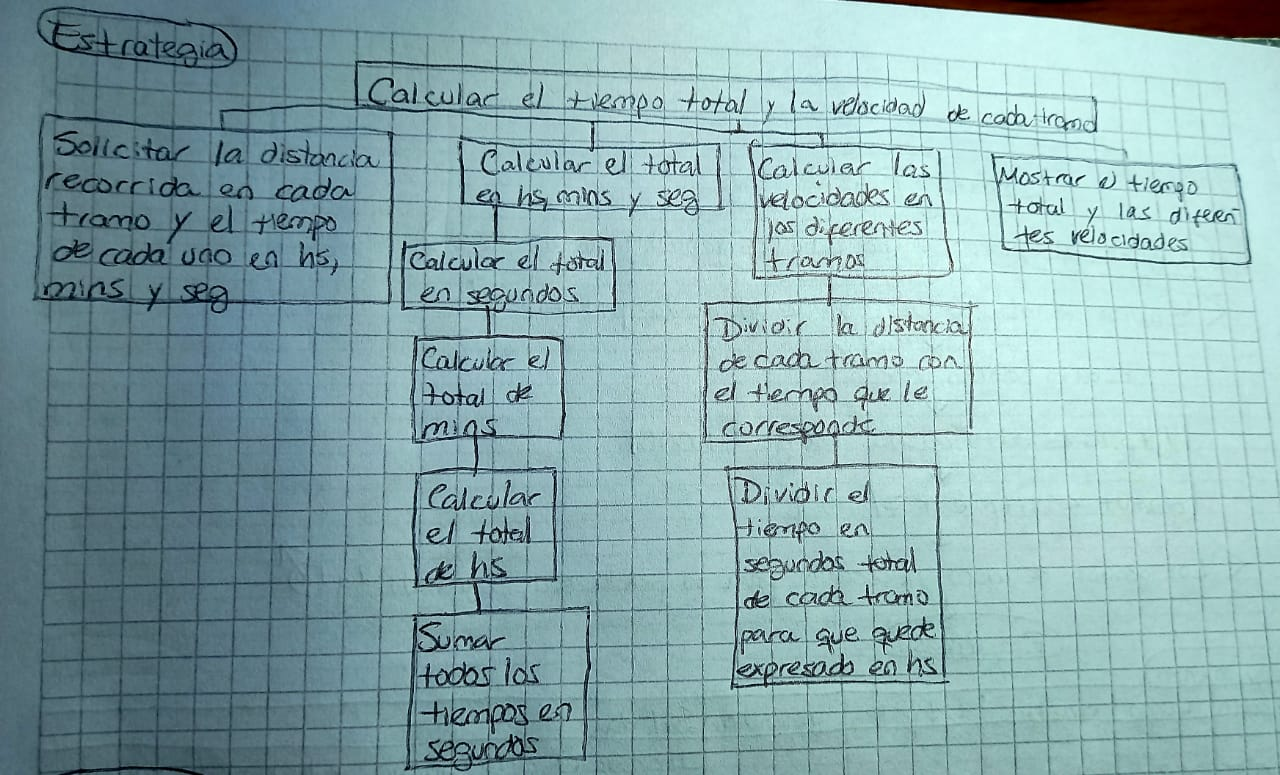 Estrategia
Calcular el tiempo total y la velocidad de cada tramo
Solicitar la distancia
recorrida en cada
tramo y el tiempo
de cada uno en hs,
mins y seg
Calcular el total
en hs, mins y seg
Calcular el total
en segundos
Calcular el
total de
mins
Calcular
el total
de hs
Sumar
todos los
tiempos en
segundos
Calcular las
velocidades en
los diferentes
tramos
Dividir la distancia
de cada tramo con
el tiempo que le
corresponde
Dividir el
tiempo en
segundos total
de cada tramo
para que quede
expresado en hs
Mostrar el tiempo
total y las diferen
tes velocidades